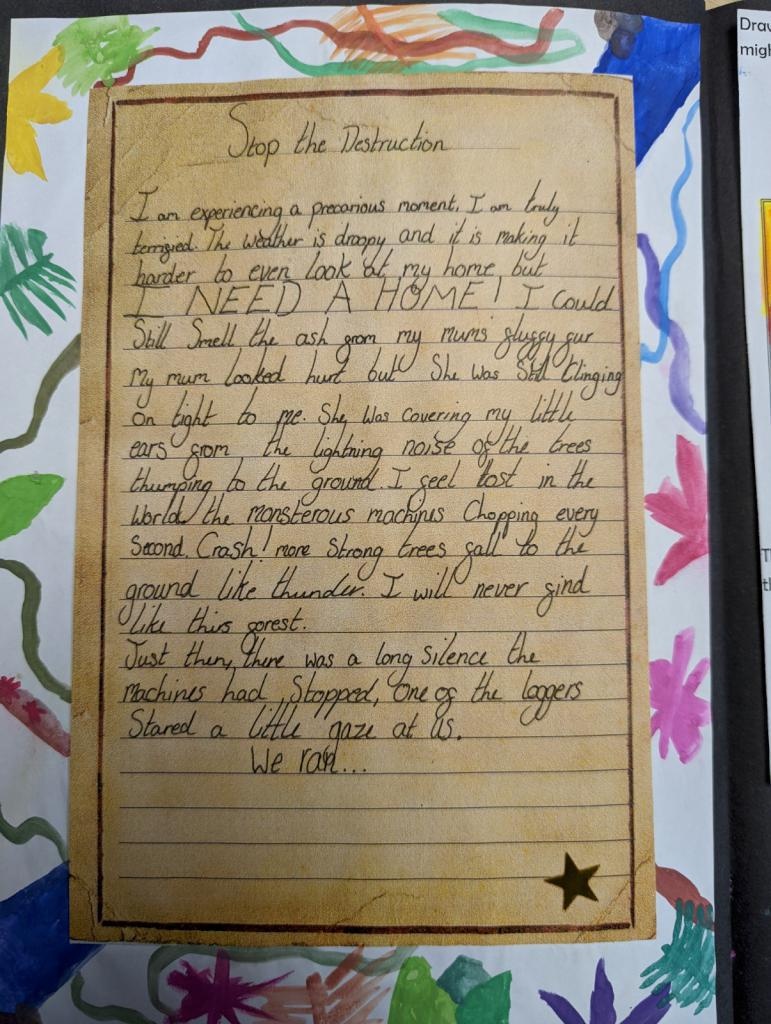 Stop the Destruction
I am experiencing a precarious moment, I am truly
terrified. The weather is droopy and it is making it
harder to even look at my home, but
I NEED A HOME! I could
Still Smell the ash from my mums fluffy fur
My mum looked hurt but She was Still Clinging
on tight to me. She Was Covering my little
ears from the lightning noise of the trees
thumping to the ground. I feel lost in the
World, the monsterous machines Chopping every
Second. Crash! more Strong trees fall to the
ground like thunder. I will never find
like this forest.
Just then, there was a long Silence the
Machines had Stopped, One of the loggers
Stared a little gaze at us.
We ran...
Draw
migh
T
th